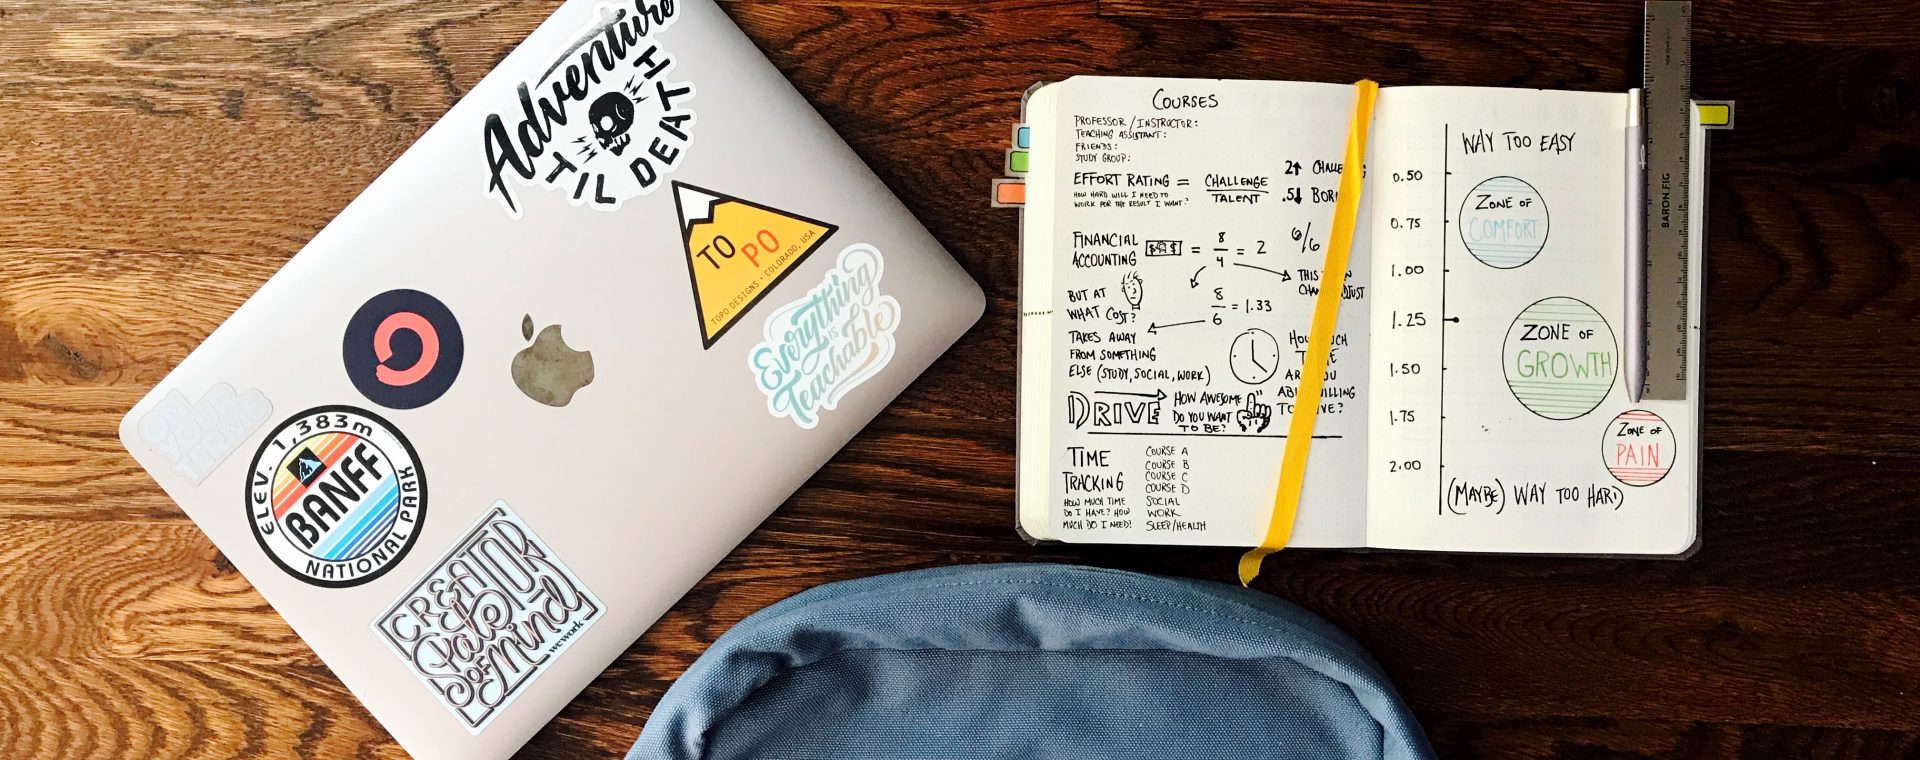 Adventure
TIL DEATH
TO PO
TOPO DESIGNS • COLORADO, USA
Everything
is
Teachable
ON
YOUR
TERMS
ELEV. 1,383m
BANFF
NATIONAL PARK
CREATOR
Pals
OF
Mind
wework
COURSES
PROFESSOR / INSTRUCTOR:
TEACHING ASSISTANT:
FRIENDS:
STUDY GROUP:
EFFORT RATING = CHALLENGE
TALENT
HOW HARD WILL I NEED TO
WORK FOR THE RESULT I WANT?
2↑
.5↓
FINANCIAL
ACCOUNTING
$ $ = 8/4 = 2
6/6
THIS
BUT AT
WHAT COST?
8/6 = 1.33
TAKES AWAY
FROM SOMETHING
ELSE (STUDY, SOCIAL, WORK)
DRIVE
HOW AWESOME
DO YOU WANT
TO BE?
TIME
TRACKING
HOW MUCH TIME
DO I HAVE? HOW
MUCH DO I NEED?
COURSE A
COURSE B
COURSE C
COURSE D
SOCIAL
WORK
SLEEP/HEALTH
WAY TOO EASY
0.50
0.75
1.00
1.25
1.50
1.75
2.00
ZONE OF
COMFORT
ZONE OF
GROWTH
ZONE OF
PAIN
(MAYBE) WAY TOO HARD
BARON FIG